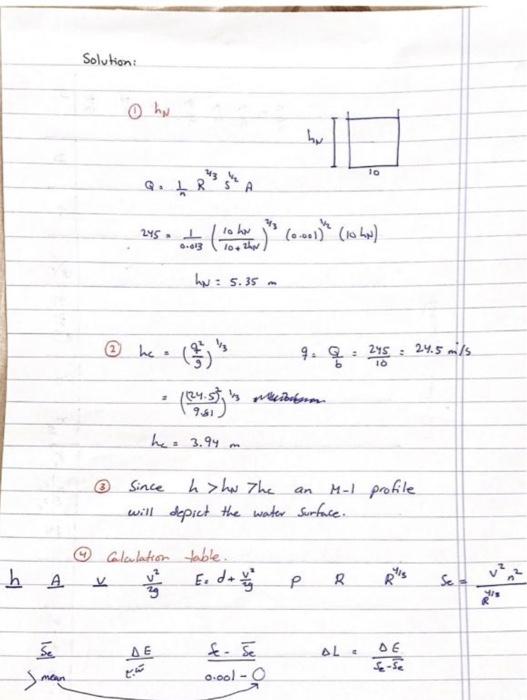 Solution:
① hN
hN
10
Q = 1/n R^2/3 S^1/2 A
245 = 1/0.013 (10 hN / 10 + 2hN)^2/3 (0.001)^1/2 (10 hN)
hN = 5.35 m
② hc = (q²/g)^1/3 q = Q/b = 245/10 = 24.5 m²/s
= ((24.5)²/9.81)^1/3
hc = 3.94 m
③ Since h > hN > hc an M-1 profile
will depict the water surface.
④ Calculation table.
h A v v²/2g E = d + v²/2g P R R^4/3 Se = v² n² / R^4/3
S̄e ΔE - S̄e ΔL = ΔE
mean 0.001 - O